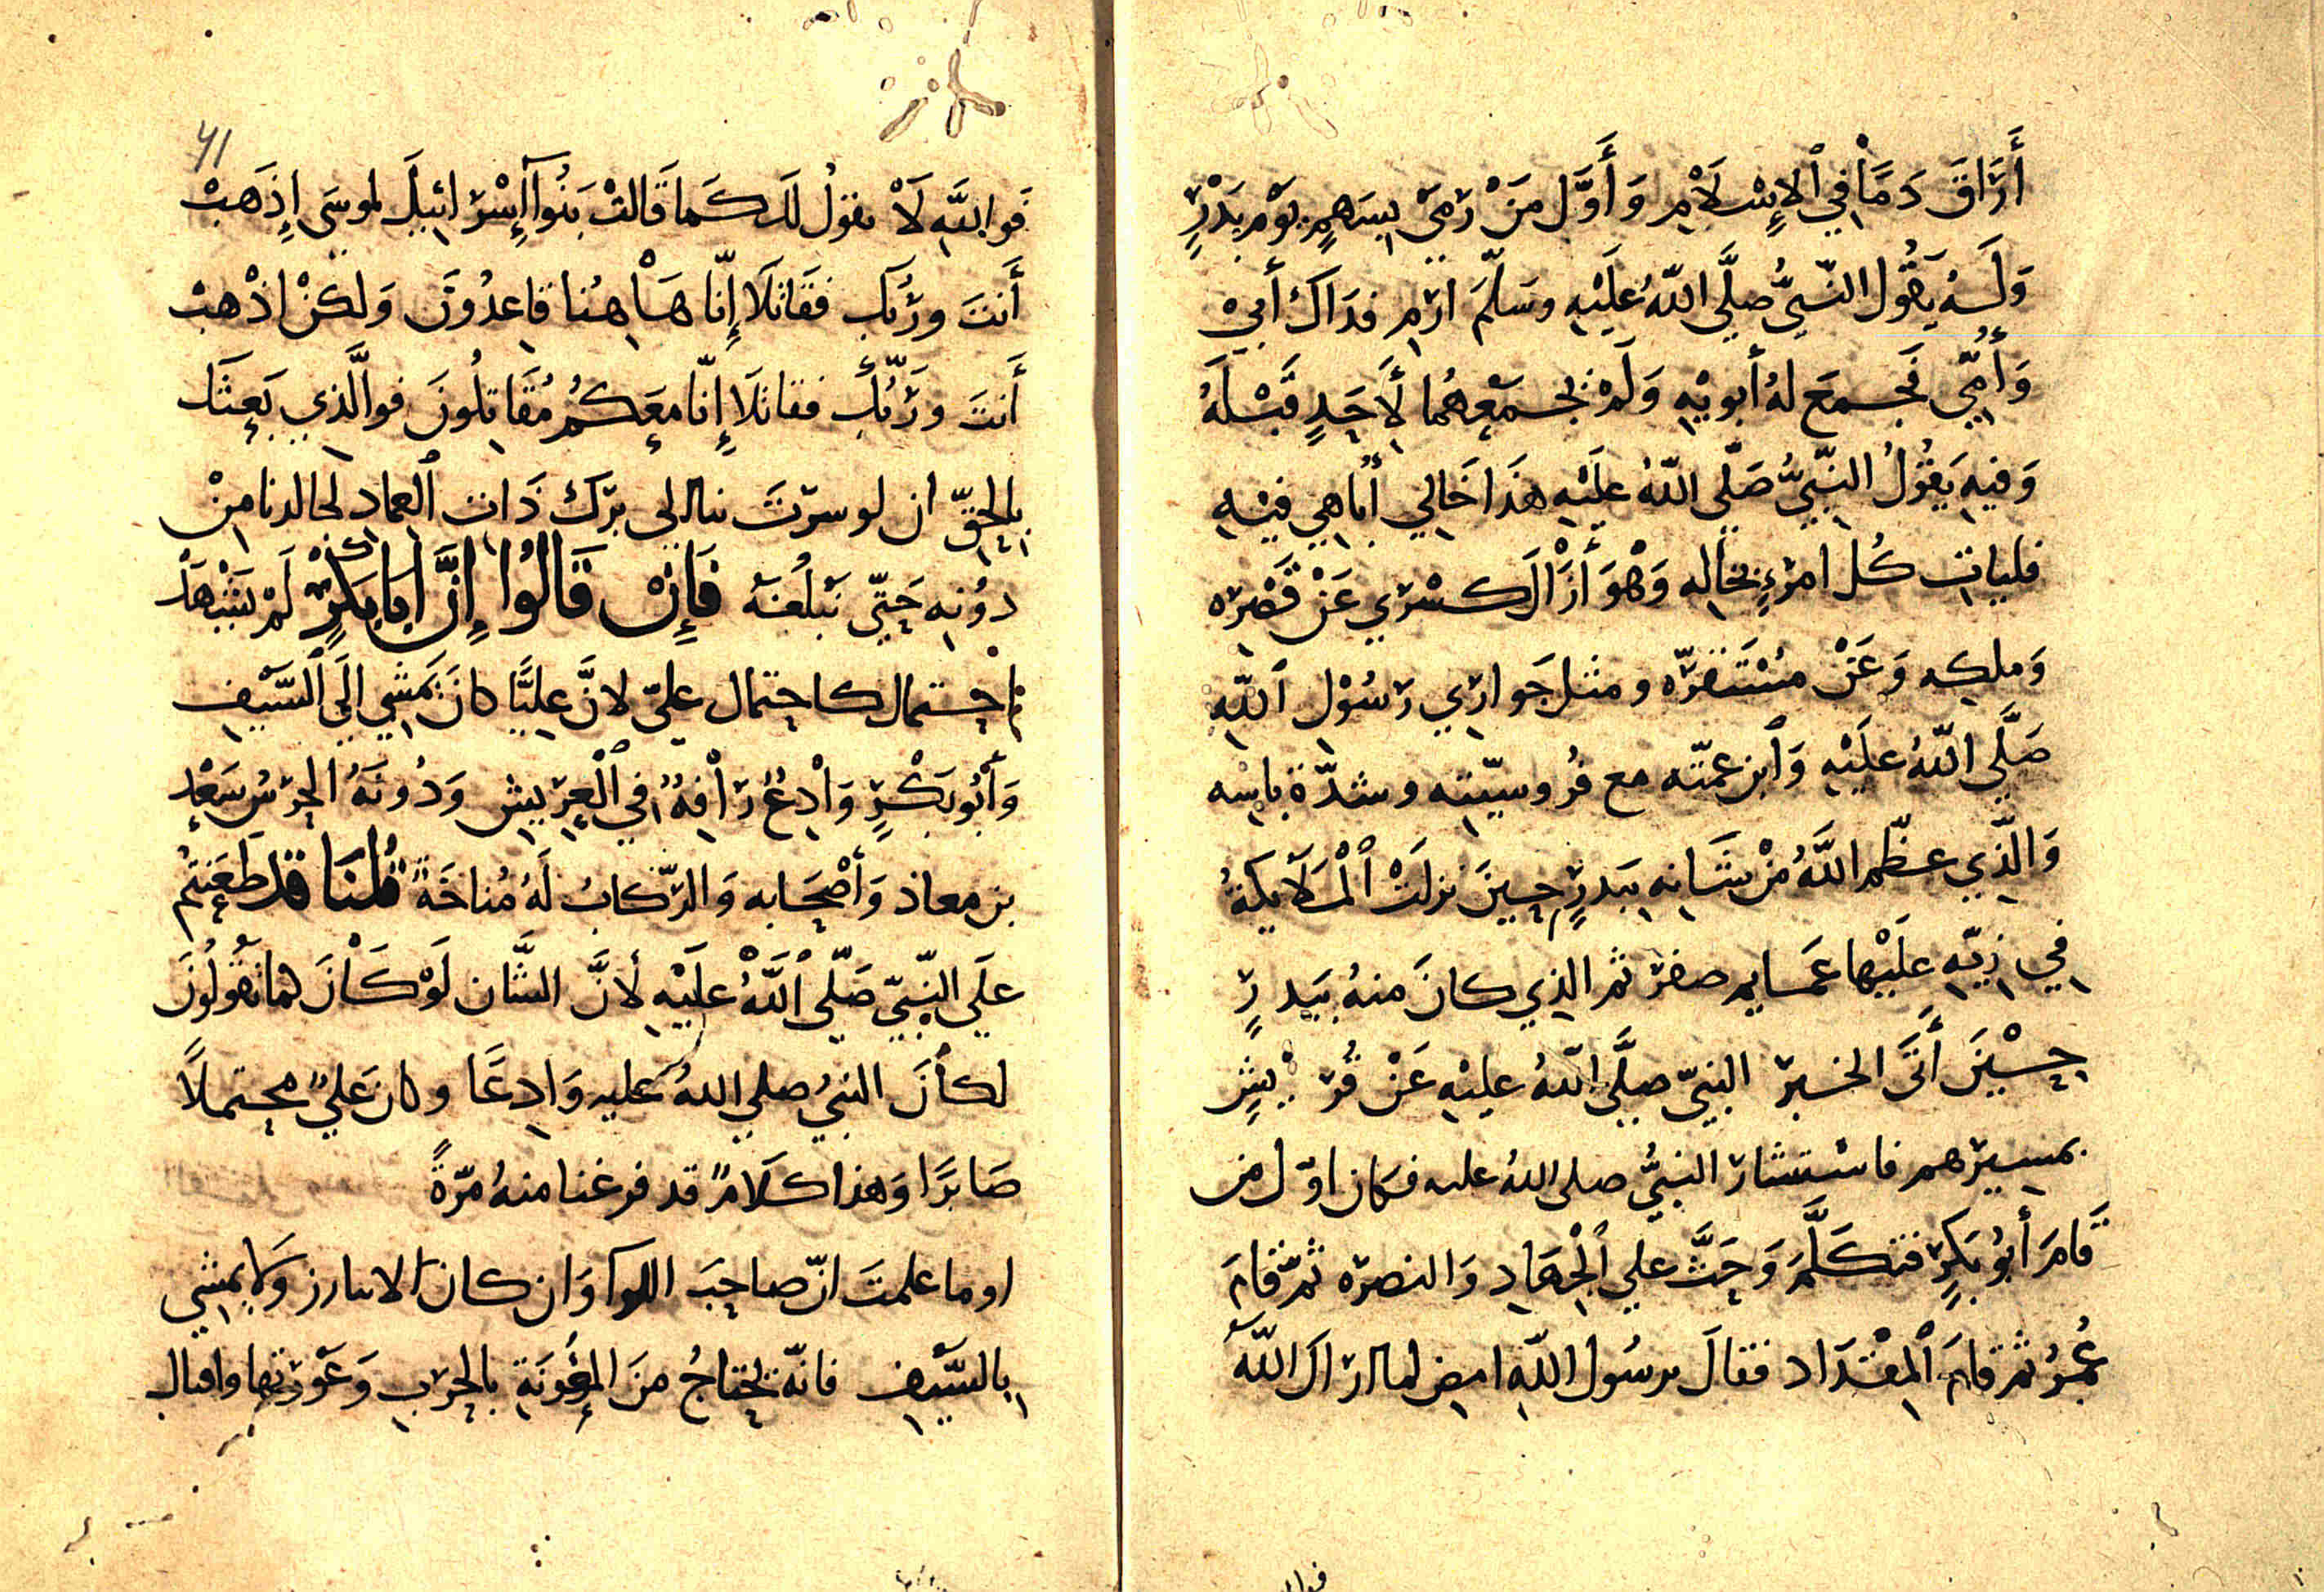 أَرَاقَ دَمًا في الإِسْلَامِ وَأَوَّل مَنْ رَمَى بِسَهمٍ يَوْم بَدْرٍ
وَلَهُ يَقُول النّبيُّ صلَّى اللّهُ عَلَيْهِ وسَلّمَ ارْمِ فدَاكَ أَبِيْ
وَأُمِّي فَجمَعَ لهُ أبويْهِ وَلَمْ يجمَعهُما لأَحَدٍ قَبْلَهُ
وَفيهِ يَقُولُ النّبِيُّ صَلّى اللّهُ عَلَيْهِ هذَا خَالي أُبَاهي فيْهِ
فليات كُل امرْءٍ بخاله وَهْوَ أَزَالَ كسْرَي عَنْ قَصْرِه
وَملكِه وَعَنْ مُسْتَقَرّه ومثل جَوارِي رَسُوْل اللّهِ
صَلَّى اللّهُ عَلَيْهِ وَابن عمّته مع فُروسيّته وشدّة باسه
وَالّذِي عظّم اللَّهُ مْنْ شَانِه ببَدرٍ حينَ نزلَتْ الْمَلَائِكةُ
فِي زِيّهِ عَلَيْها عَمَايم صفر ثم الذِي كانَ منهُ بَبَدرٍ
حِيْنَ أَتَى الخَبر النبيّ صلَّى اللّهُ عليْهِ عَنْ قُرَيْشٍ
بمسِيرهم فاسْتشارَ النبيُّ صلى اللهُ عليه فكان اوّل من
قَامَ أَبُو بَكرٍ فتكَلَّمَ وَحَثَّ علي الْجهَادِ وَالنصرَه ثمّ قامَ
عُمَرُ ثمّ قامَ الْمقْدَاد فقالَ يرسُول اللّهِ امض لما اراكَ اللّهُ
فوالله
41
فَواللَّهِ لَا نقوْلُ لكَ كَما قَالتْ بَنُوا إسْرَائيلَ لموسَى إِذَهَبْ
أَنتَ ورَبُّكَ فقَاتلَا إِنّا هَاهنُا قاعدُونَ وَلكنْ اذْهَبْ
أَنتَ ورَبُّكَ فقاتلَا إِنّا معَكُم مُقَاتلُونَ فوالَّذي بَعثَكَ
بالحَقّ ان لو سرْتَ بنا الى بَرْكَ ذَات العماد لجالدنا منْ
دوُنِه حَتّى نبْلُغهُ فَإِنْ قَالُوْا إِنَّ ابَا بَكْرٍ لَمْ يَشْهَدْ
احتمال كاحتمال عليّ لانَّ عليًّا كانَ يَمشي الَي السَّيْفِ
وَأَبُو بَكْرٍ وَادعٌ رَافِهٌ في الْعرِيش وَدُونَهُ الحرَسُ سَعْد
بن معاذ وَأَصْحَابه وَالرّكابُ لَهُ مُناخَةً قُلْنَا قد طَعَنتُم
علَي النّبيّ صَلّى اللَّهُ عَلَيْهِ لأنَّ الشَّان لَوْ كَانَ كما تقولُونَ
لكانَ النبيُّ صلي اللهُ عليه وَادعًا وكان عَليٌّ محتملاً
صَابرًا وَهَذا كلَامٌ قد فرغنا منهُ مرّةً
او ما علمتَ انّ صاحِبَ اللوا وَان كان لا يبارز وَلا يَمشي
بالسَّيْف فانّهُ يحتاجُ منَ المؤونَةِ بالحرَب وَعَوْرَتها واقبال